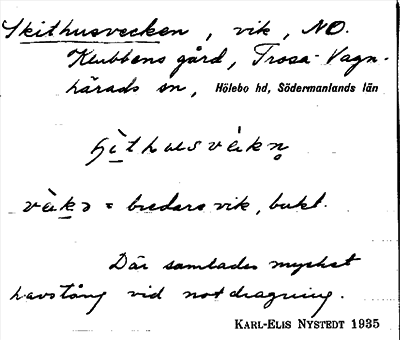 Skithusvecken, vik, NO.
Klubbens gård, Trosa-Vagn-
härads sn, Hölebo hd, Södermanlands län
ʃìthusvèkn̥
vèkə = bredare vik, bukt.
Där samlades mycket
havstång vid notdragning.
KARL-ELIS NYSTEDT 1935